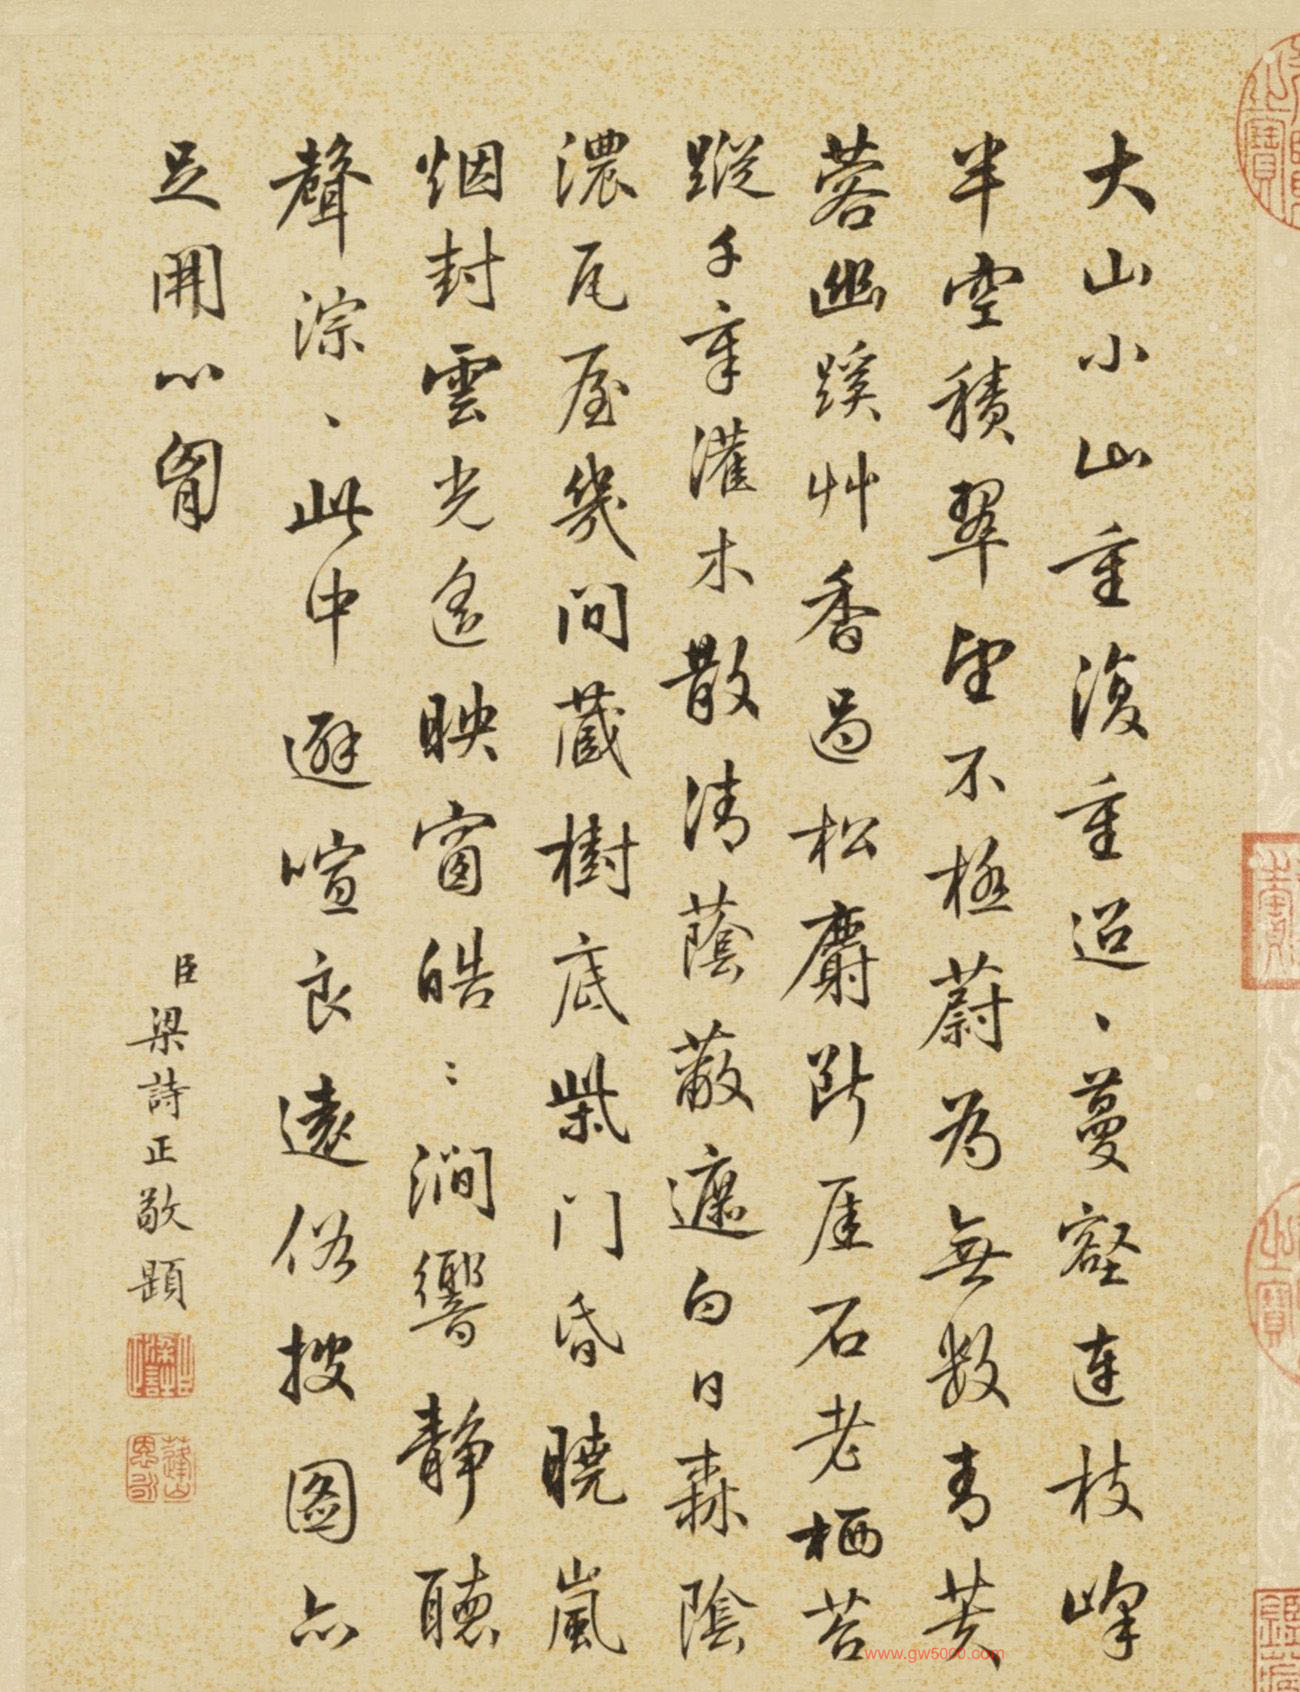 大山小山重復重迢、蔓壑連枝峰
半空積翠望不極蔚為無數青芙
蓉幽蹊艸香過松麝斷厓石老栖苔
蹤千章灌木散清蔭蔽遮白日森陰
濃瓦屋幾间蔵樹底柴门昏曉嵐
烟封雲光遙映窗皓〻澗響靜聽
聲淙、此中避喧良遠俗披圖亦
足開心胷
臣梁詩正敬題
www.gw5000.com